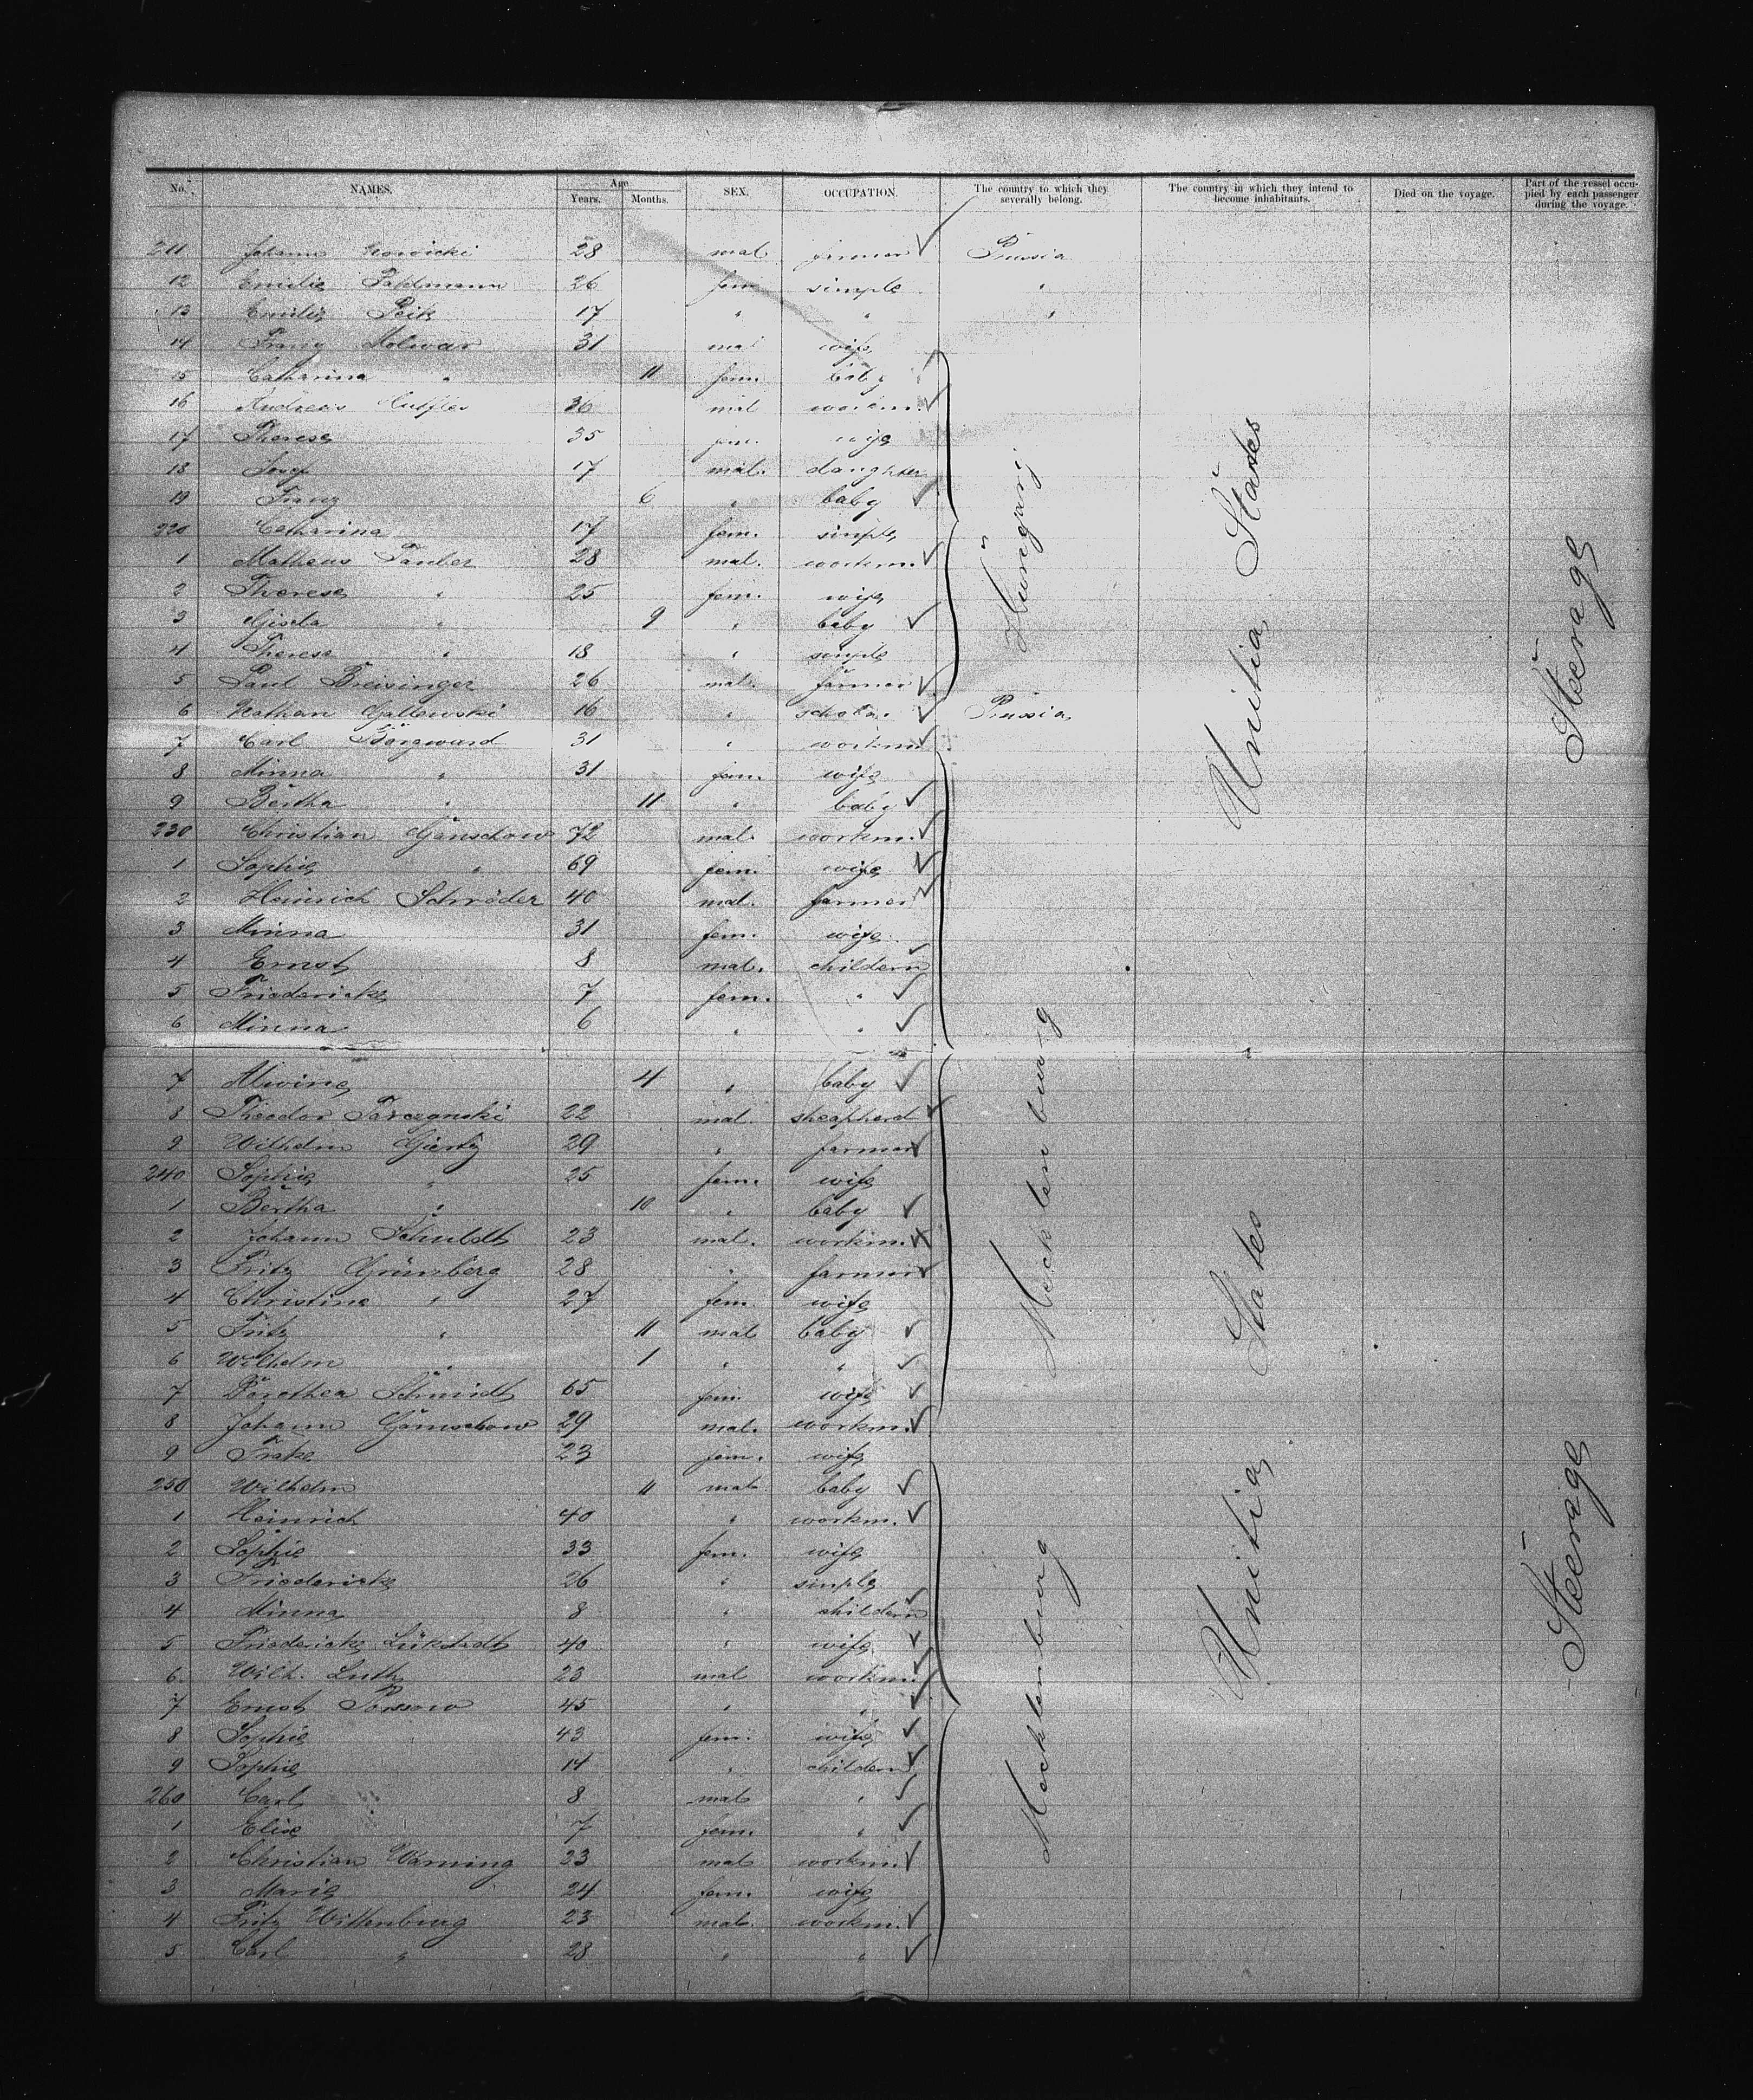 No. NAMES. Age Years. Months. SEX. OCCUPATION. The country to which they severally belong. The country in which they intend to become inhabitants. Died on the voyage. Part of the vessel occupied by each passenger during the voyage.
211 Johann 28 mal farmer Prussia
12 Emilie Pahlmann 26 fem simple "
13 Emilie Peik 17 " " "
14 Franz Molwar 31 mal wife
15 Catharina " 11 fem. baby
16 Andreas 36 mal workm.
17 Therese 35 fem. wife
18 Josef 17 mal. daughter
19 Franz 6 " baby
220 Catharina 17 fem. simple
1 Matheus Tauber 28 mal. workm.
2 Therese " 25 fem. wife
3 Gisela " 9 " baby
4 Therese " 18 " simple
5 Paul Breisinger 26 mal. farmer
Hungary
6 Nathan Gallewski 16 " scholar Prussia
7 Carl Borgward 31 " workm
8 Minna " 31 fem. wife
9 Bertha " 11 " baby
230 Christian Gänschow 72 mal. workm.
1 Sophie " 69 fem. wife
2 Heinrich Schröder 40 mal. farmer
3 Minna 31 fem. wife
4 Ernst 8 mal. childern
5 Friedericke 7 fem. "
6 Minna 6 " "
7 Alwine 4 " baby
8 Theodor Tarczynski 22 mal. sheapherd
9 Wilhelm Giertz 29 " farmer
240 Sophie " 25 fem. wife
1 Bertha " 10 " baby
2 Johann Schuldt 23 mal. workm.
3 Fritz Grünberg 28 " farmer
4 Christine " 27 fem. wife
5 Fritz " 11 mal baby
6 Wilhelm " 1 " "
7 Dorothea Schmidt 65 fem. wife
8 Johann Gänschow 29 mal. workm.
Mecklenburg
9 Frake 23 fem. wife
250 Wilhelm 11 mal baby
1 Heinrich 40 " workm.
2 Sophie 33 fem. wife
3 Friedericke 26 " simple
4 Minna 8 " childern
5 Friedericke Lükstedt 40 " wife
6 Wilh. Luth 23 mal workm.
7 Ernst Possow 45 " "
8 Sophie 43 fem. wife
9 Sophie 14 " childern
260 Carl 8 mal "
1 Elise 7 fem. "
2 Christian Warning 23 mal workm.
3 Marie 24 fem. wife
4 Fritz Wittenburg 23 mal. workm.
5 Carl " 28 " "
Mecklenburg
Unitia States
Unitia States
Steerage
Steerage